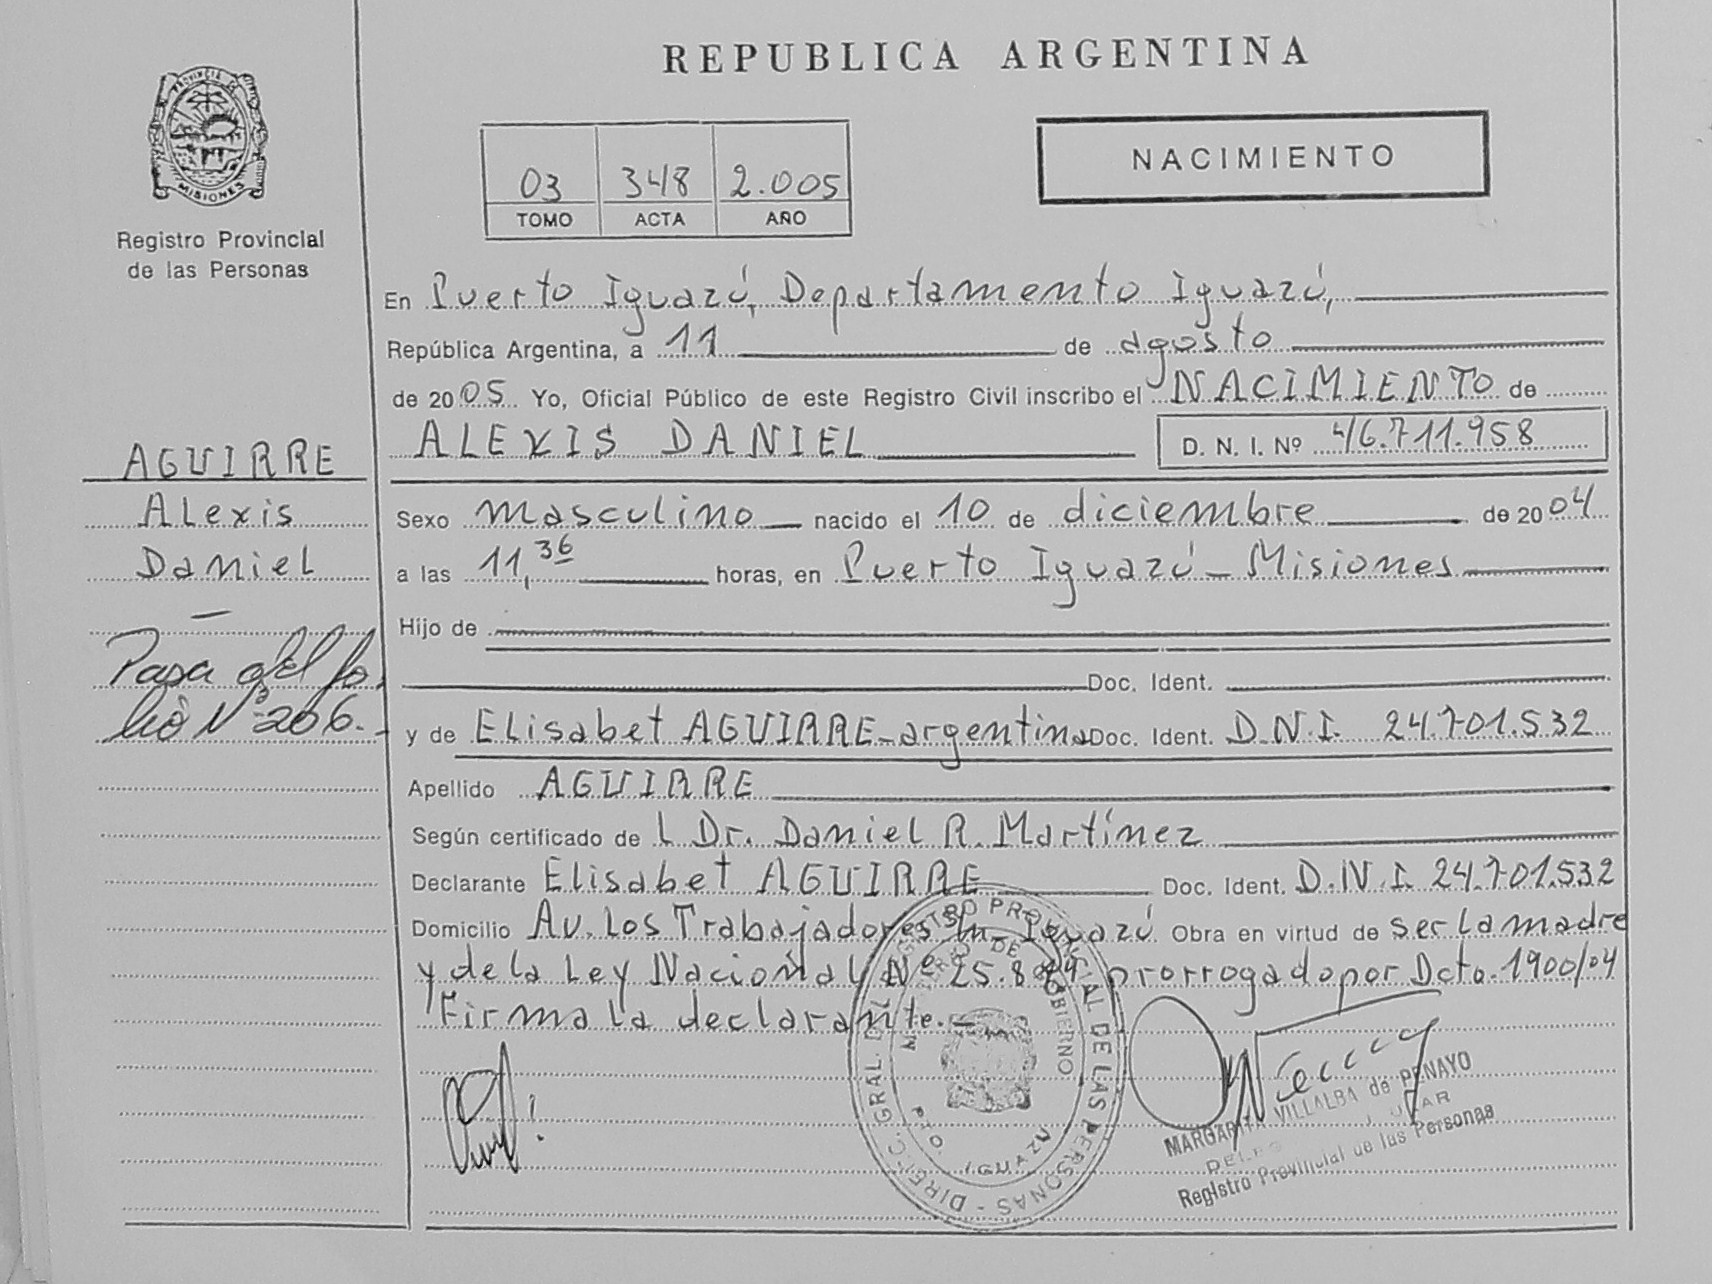 REPUBLICA ARGENTINA
PROVINCIA DE
MISIONES
Registro Provincial
de las Personas
03 348 2.005
TOMO ACTA AÑO
NACIMIENTO
En Puerto Iguazú, Departamento Iguazú,
República Argentina, a 11 de agosto
de 2005 Yo, Oficial Público de este Registro Civil inscribo el NACIMIENTO de
ALEXIS DANIEL D. N. I. Nº 46.711.958
AGUIRRE
Alexis
Daniel
Pasa al fo
lio Nº 206.-
Sexo masculino nacido el 10 de diciembre de 2004
a las 11,36 horas, en Puerto Iguazú - Misiones
Hijo de
Doc. Ident.
y de Elisabet AGUIRRE - argentina Doc. Ident. D.N.I. 24.701.532
Apellido AGUIRRE
Según certificado de l Dr. Daniel R. Martínez
Declarante Elisabet AGUIRRE Doc. Ident. D.N.I. 24.701.532
Domicilio Av. Los Trabajadores S/n - Iguazú Obra en virtud de ser la madre
y de la Ley Nacional Nº 25.8 prorrogado por Dcto. 1900/04
Firma la declarante.-
DIREC. GRAL. DEL REGISTRO PROVINCIAL DE LAS PERSONAS
DE GOBIERNO
PTO. IGUAZU
MARGARITA VILLALBA de PENAYO
Registro Provincial de las Personas